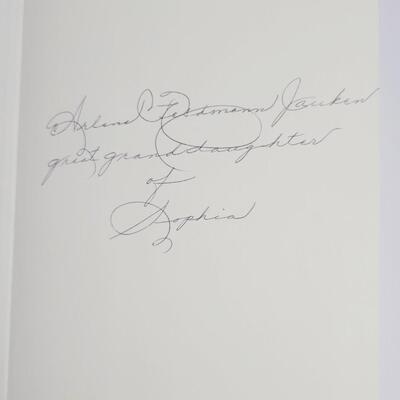 Arlene Feldmann Jauken
great granddaughter
of
Sophia